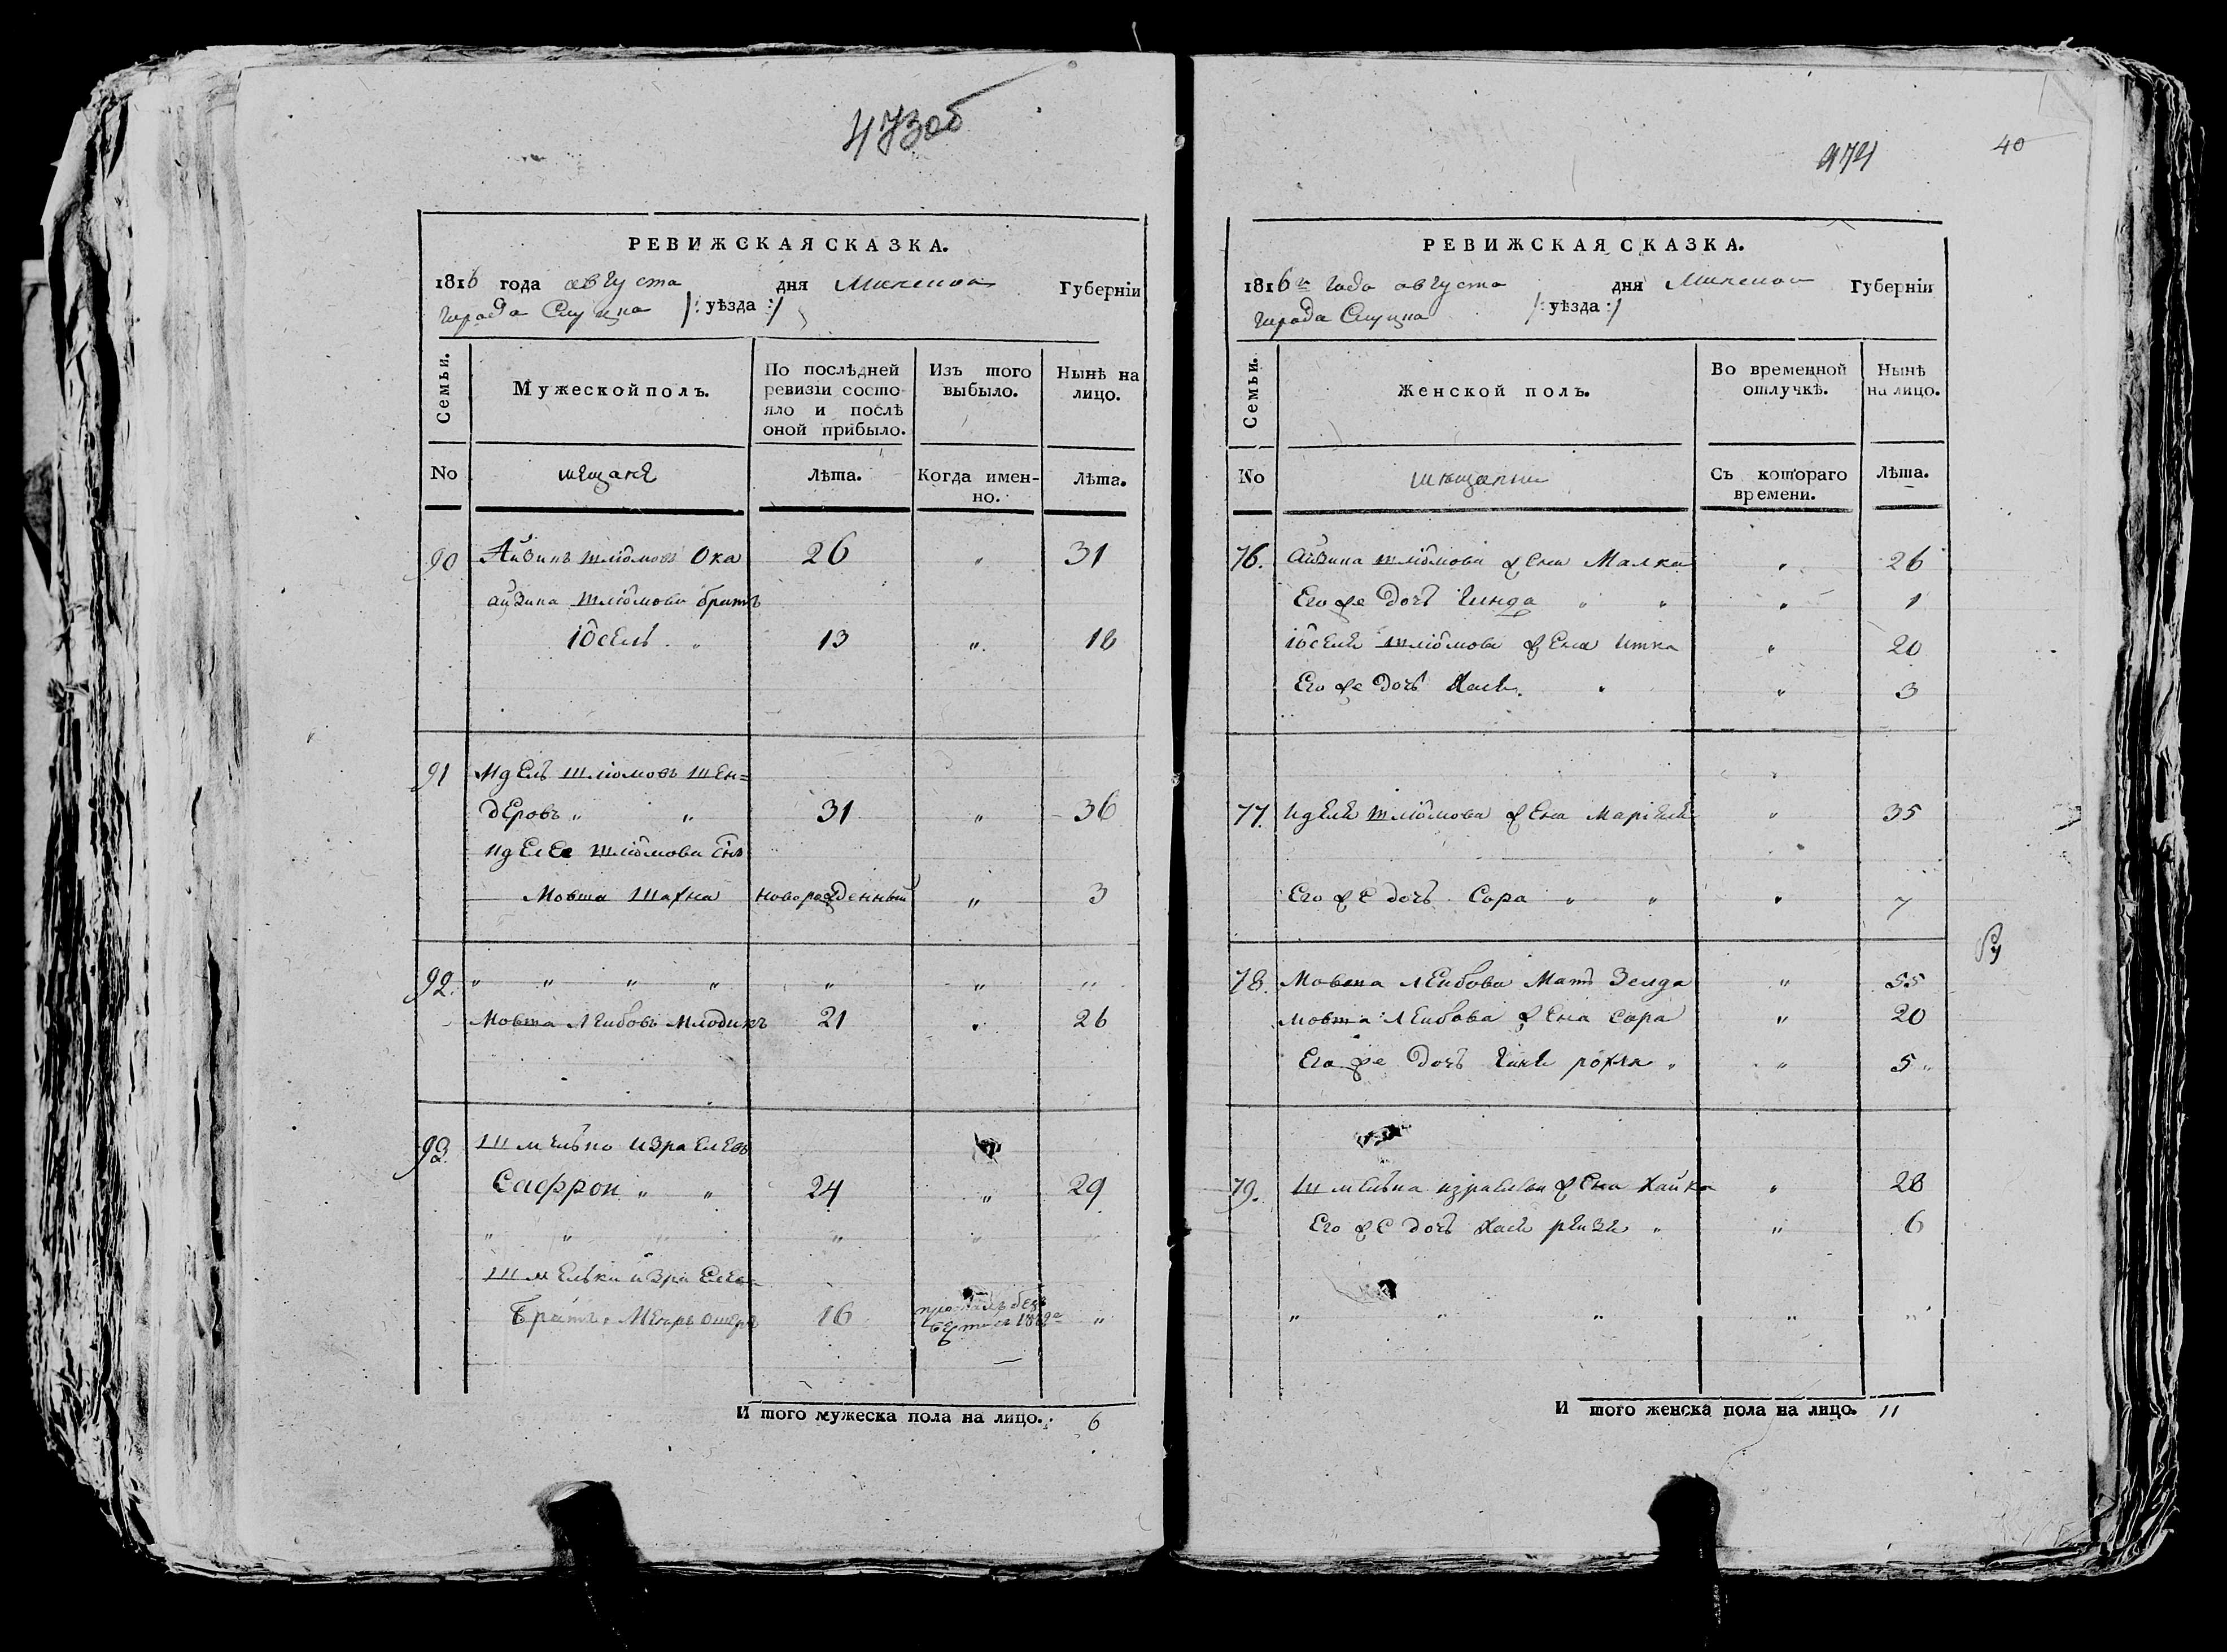 473об
РЕВИЖСКАЯ СКАЗКА.
1816 года августа дня Минской Губерніи
города Слуцка /: уѣзда :/
Семьи.
Мужеской полъ.
По послѣдней ревизіи состо-
яло и послѣ оной прибыло.
Изъ того выбыло.
Нынѣ на лицо.
No мещане Лѣта. Когда имен-
но. Лѣта.
90 Айзикъ Шліомовъ Ока 26 " 31
айзика Шліомова братъ
Іосель " 13 " 18
91 Идель Шліомовъ Шен=
деровъ " " 31 " 36
Иделе Шліомова сынъ
Мовша Шахна новорожденный " 3
92. " " " " " " "
Мовша Лейбовъ Млодикъ 21 " 26
93. Шмелько Израелевъ
Сафрон " " 24 " 29
" " " " "
Шмелька Израелева
братъ Меер 16 пропалъ безъ "
И того мужеска пола на лицо. 6
474
40
РЕВИЖСКАЯ СКАЗКА.
1816 года августа дня Минской Губерніи
города Слуцка /: уѣзда :/
Семьи.
Женской полъ.
Во временной отлучкѣ.
Нынѣ на лицо.
No мещанки Съ котораго
времени. Лѣта.
76. Айзика Шліомова жена Малка " 26
Его же дочь Гинда " " " 1
Іоселя Шліомова жена Итка " 20
Его же дочь Хася " " 3
77. Иделя Шліомова жена Маріяся " 35
Его же дочь Сора " " " 7
78. Мовша Лейбова мать Зелда " 55
Мовша Лейбова жена Сора " 20
Его же дочь рохля " " 5 "
79. Шмелька израелева жена Хайка " 28
Его же дочь Хася рейзя " " 6
" " " " "
И того женска пола на лицо. 11